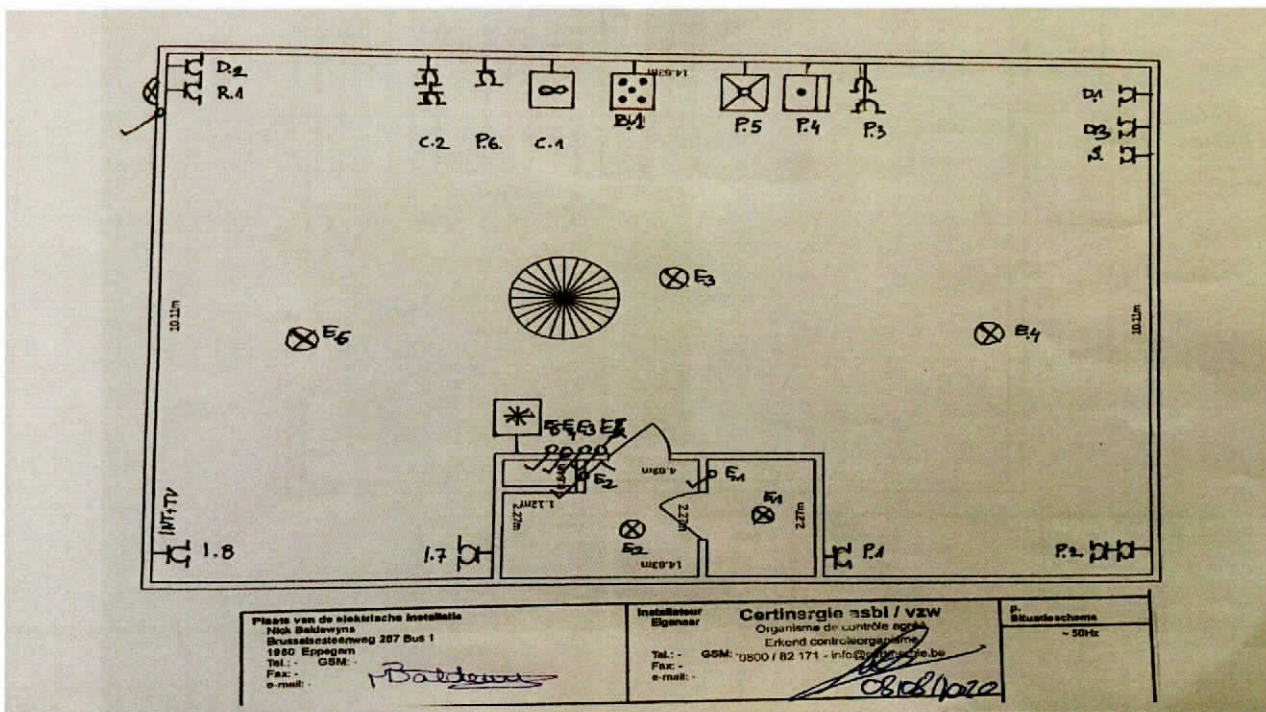 D.2
R.1
14.63m
C.2 P.6. C.1 B.1 P.5 P.4 P.3
D.1
D.3
10.11m
10.11m
E3
E.4
4.63m
E2
E.1
E.1
1.12m²
2.27m
2.27m
2.27m
E.2
14.63m
INT+TV
1.8
1.7
P.1
P.2
Plaats van de elektrische installatie
Nick Baldewyns
Brusselsesteenweg 287 Bus 1
1980 Eppegem
Tel.: - GSM: -
Fax: -
e-mail: -
Installateur
Eigenaar
Certinergie asbl / vzw
Organisme de contrôle agréé
Erkend controleorganisme
Tel.: - GSM: 0800 / 82 171 - info@certinergie.be
Fax: -
e-mail: -
P.
Situatieschema
~ 50Hz